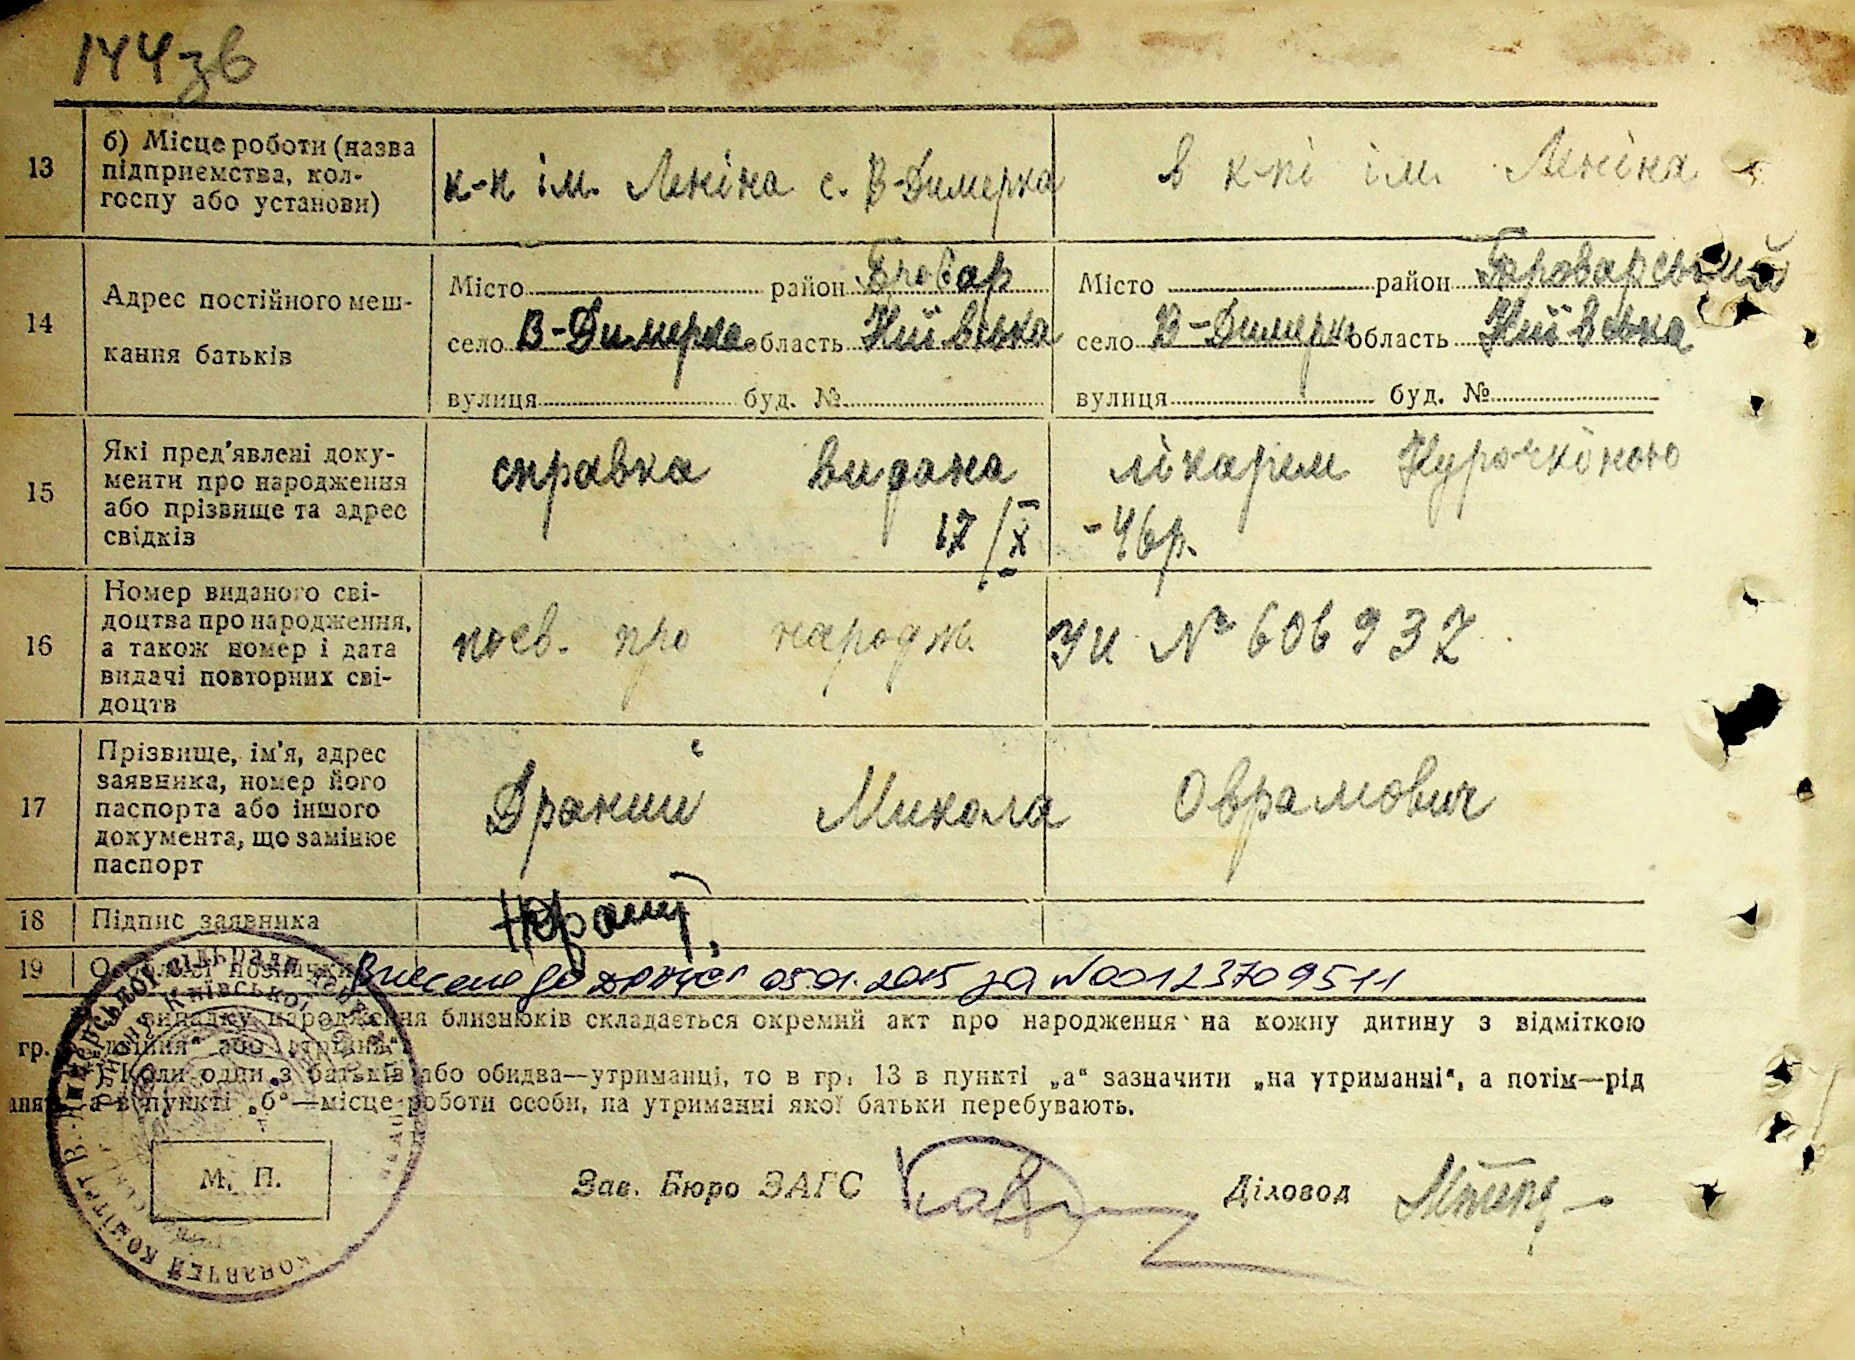 144зв
13
б) Місце роботи (назва
підприємства, кол-
госпу або установи)
к-п ім. Леніна с. В-Димерка
в к-пі ім. Леніна
14
Адрес постійного меш-
кання батьків
Місто район Бровар
село В-Димерка область Київська
вулиця буд. №
Місто район Броварський
село В-Димерка область Київська
вулиця буд. №
15
Які пред'явлені доку-
менти про народження
або прізвище та адрес
свідків
справка видана лікарем Курочкіною
17/X -46р.
16
Номер виданого сві-
доцтва про народження,
а також номер і дата
видачі повторних сві-
доцтв
посв. про народж. УИ № 606937
17
Прізвище, ім'я, адрес
заявника, номер його
паспорта або іншого
документа, що замінює
паспорт
Драний Микола Оврамович
18
Підпис заявника
19
Особливі позначки
Внесено до ДРАЦСГ 05.01.2015 за №00123709511
випадку народження близнюків складається окремий акт про народження на кожну дитину з відміткою
гр. „двійня" або „трійня".
) Коли один з батьків або обидва—утриманці, то в гр. 13 в пункті „а" зазначити „на утриманні", а потім—рід
а в пункті „б"—місце роботи особи, на утриманні якої батьки перебувають.
М. П.
Зав. Бюро ЗАГС
Діловод